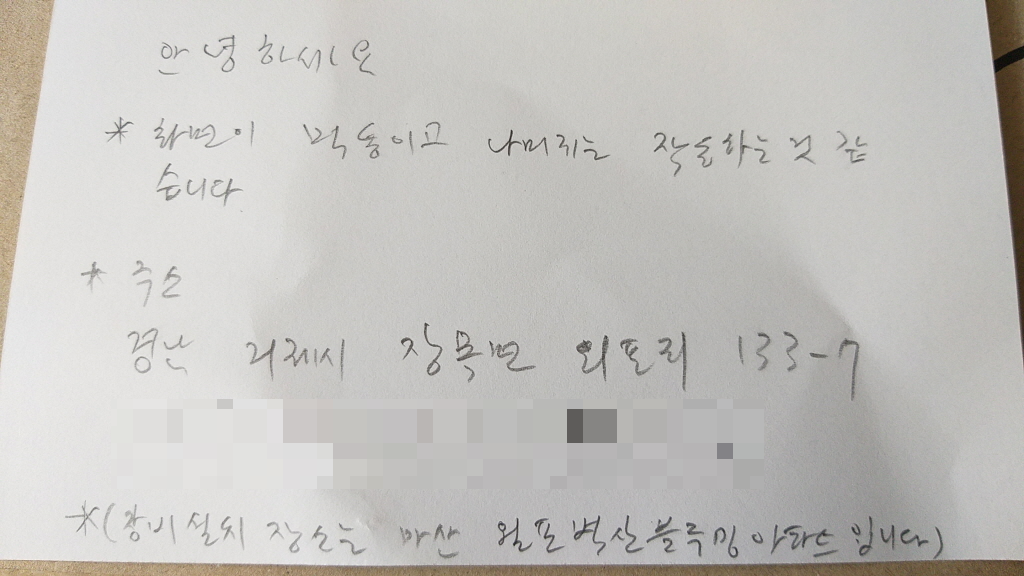 안녕하세요
* 화면이 먹통이고 나머지는 작동하는 것 같
습니다
* 주소
경남 거제시 장목면 외포리 133-7
*(장비설치 장소는 마산 월포벽산블루밍아파트입니다)